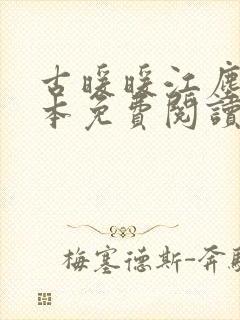 古暖暖江塵
本免費閱讀
梅塞德斯-奔馳